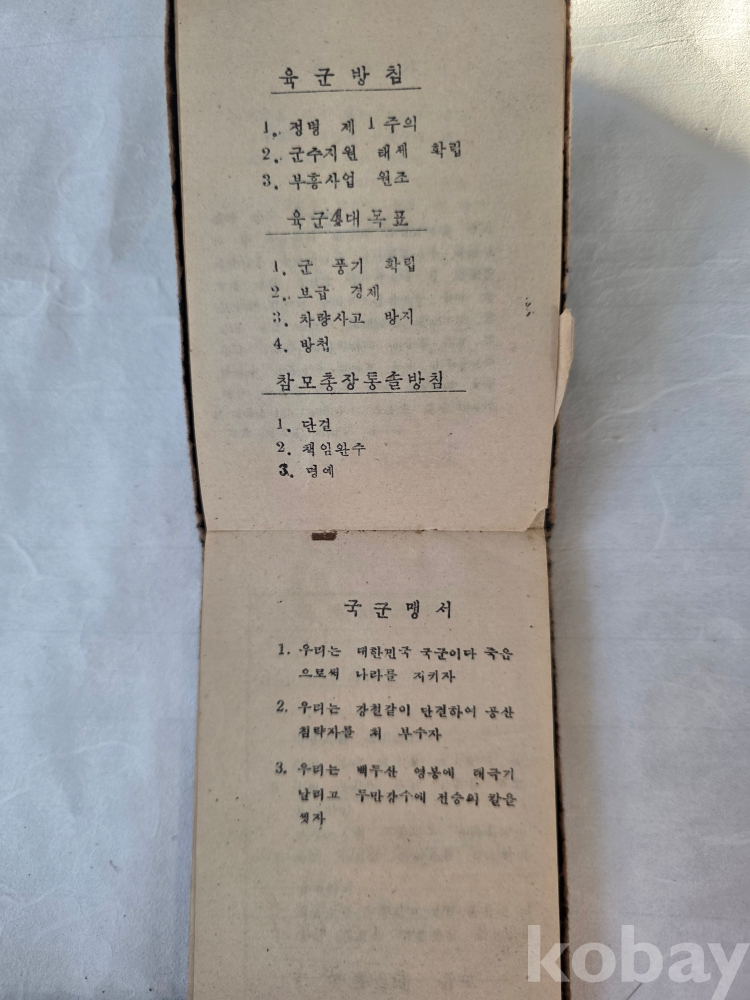 육군방침
1. 정병 제 1 주의
2. 군수지원 태세 확립
3. 부흥사업 원조
육군4대목표
1. 군 풍기 확립
2. 보급 경제
3. 차량사고 방지
4. 방첩
참모총장통솔방침
1. 단결
2. 책임완수
3. 명예
국군맹서
1. 우리는 대한민국 국군이다 죽음
으로써 나라를 지키자
2. 우리는 강철같이 단결하여 공산
침략자를 처 부수자
3. 우리는 백두산 영봉에 태극기
날리고 두만강수에 전승의 칼을
씻자
kobay